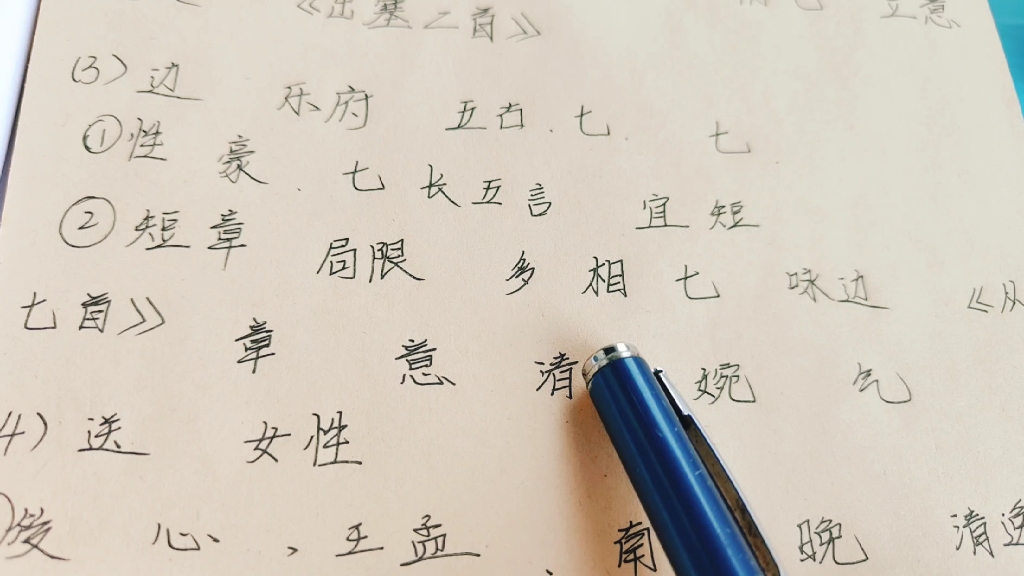 《出塞二首》 立意
(3) 边 乐府 五古. 七. 七
①性 豪. 七 长五言 宜短
②短章 局限 多 相 七 咏边 《从
七首》 章 意 清 婉 气
4) 送 女性
爱 心, 王孟、南 晚 清逸